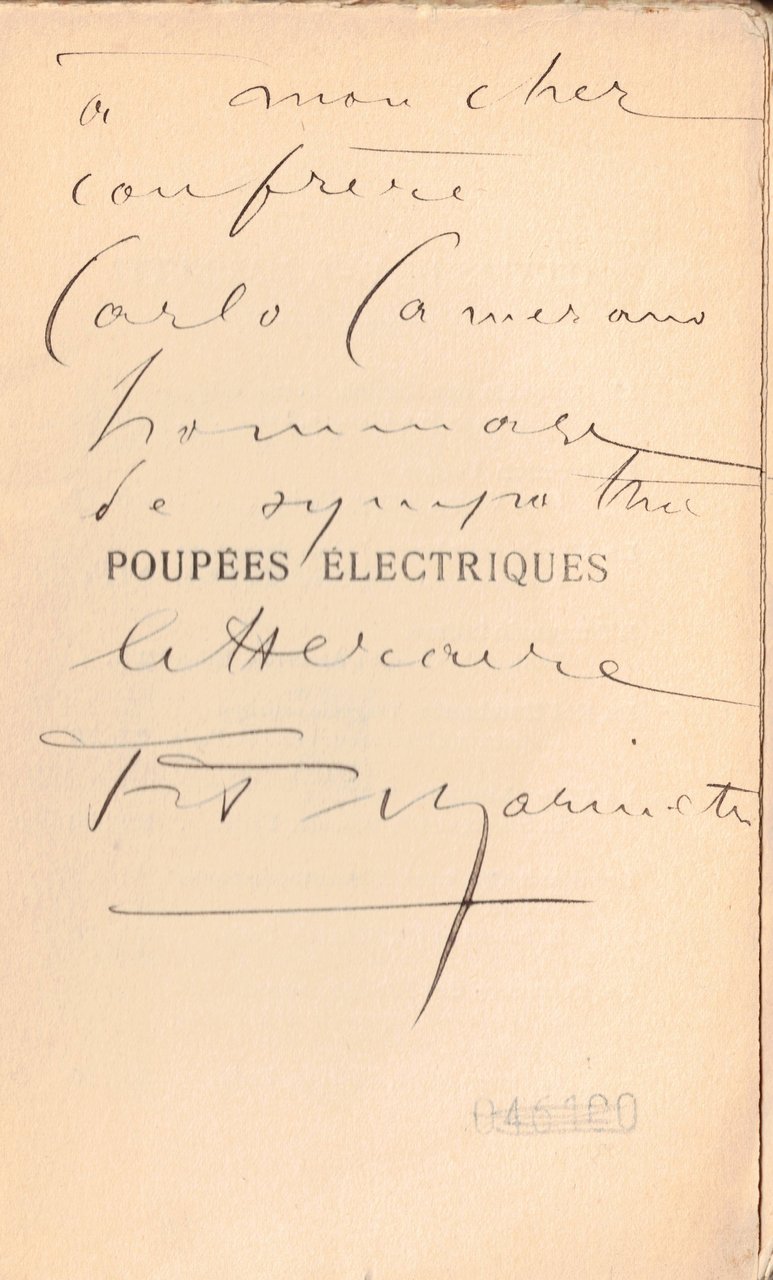 à mon cher
confrère
Carlo Camerano
hommage
de sympathie
POUPÉES ÉLECTRIQUES
littéraire
F T Marinetti
046120